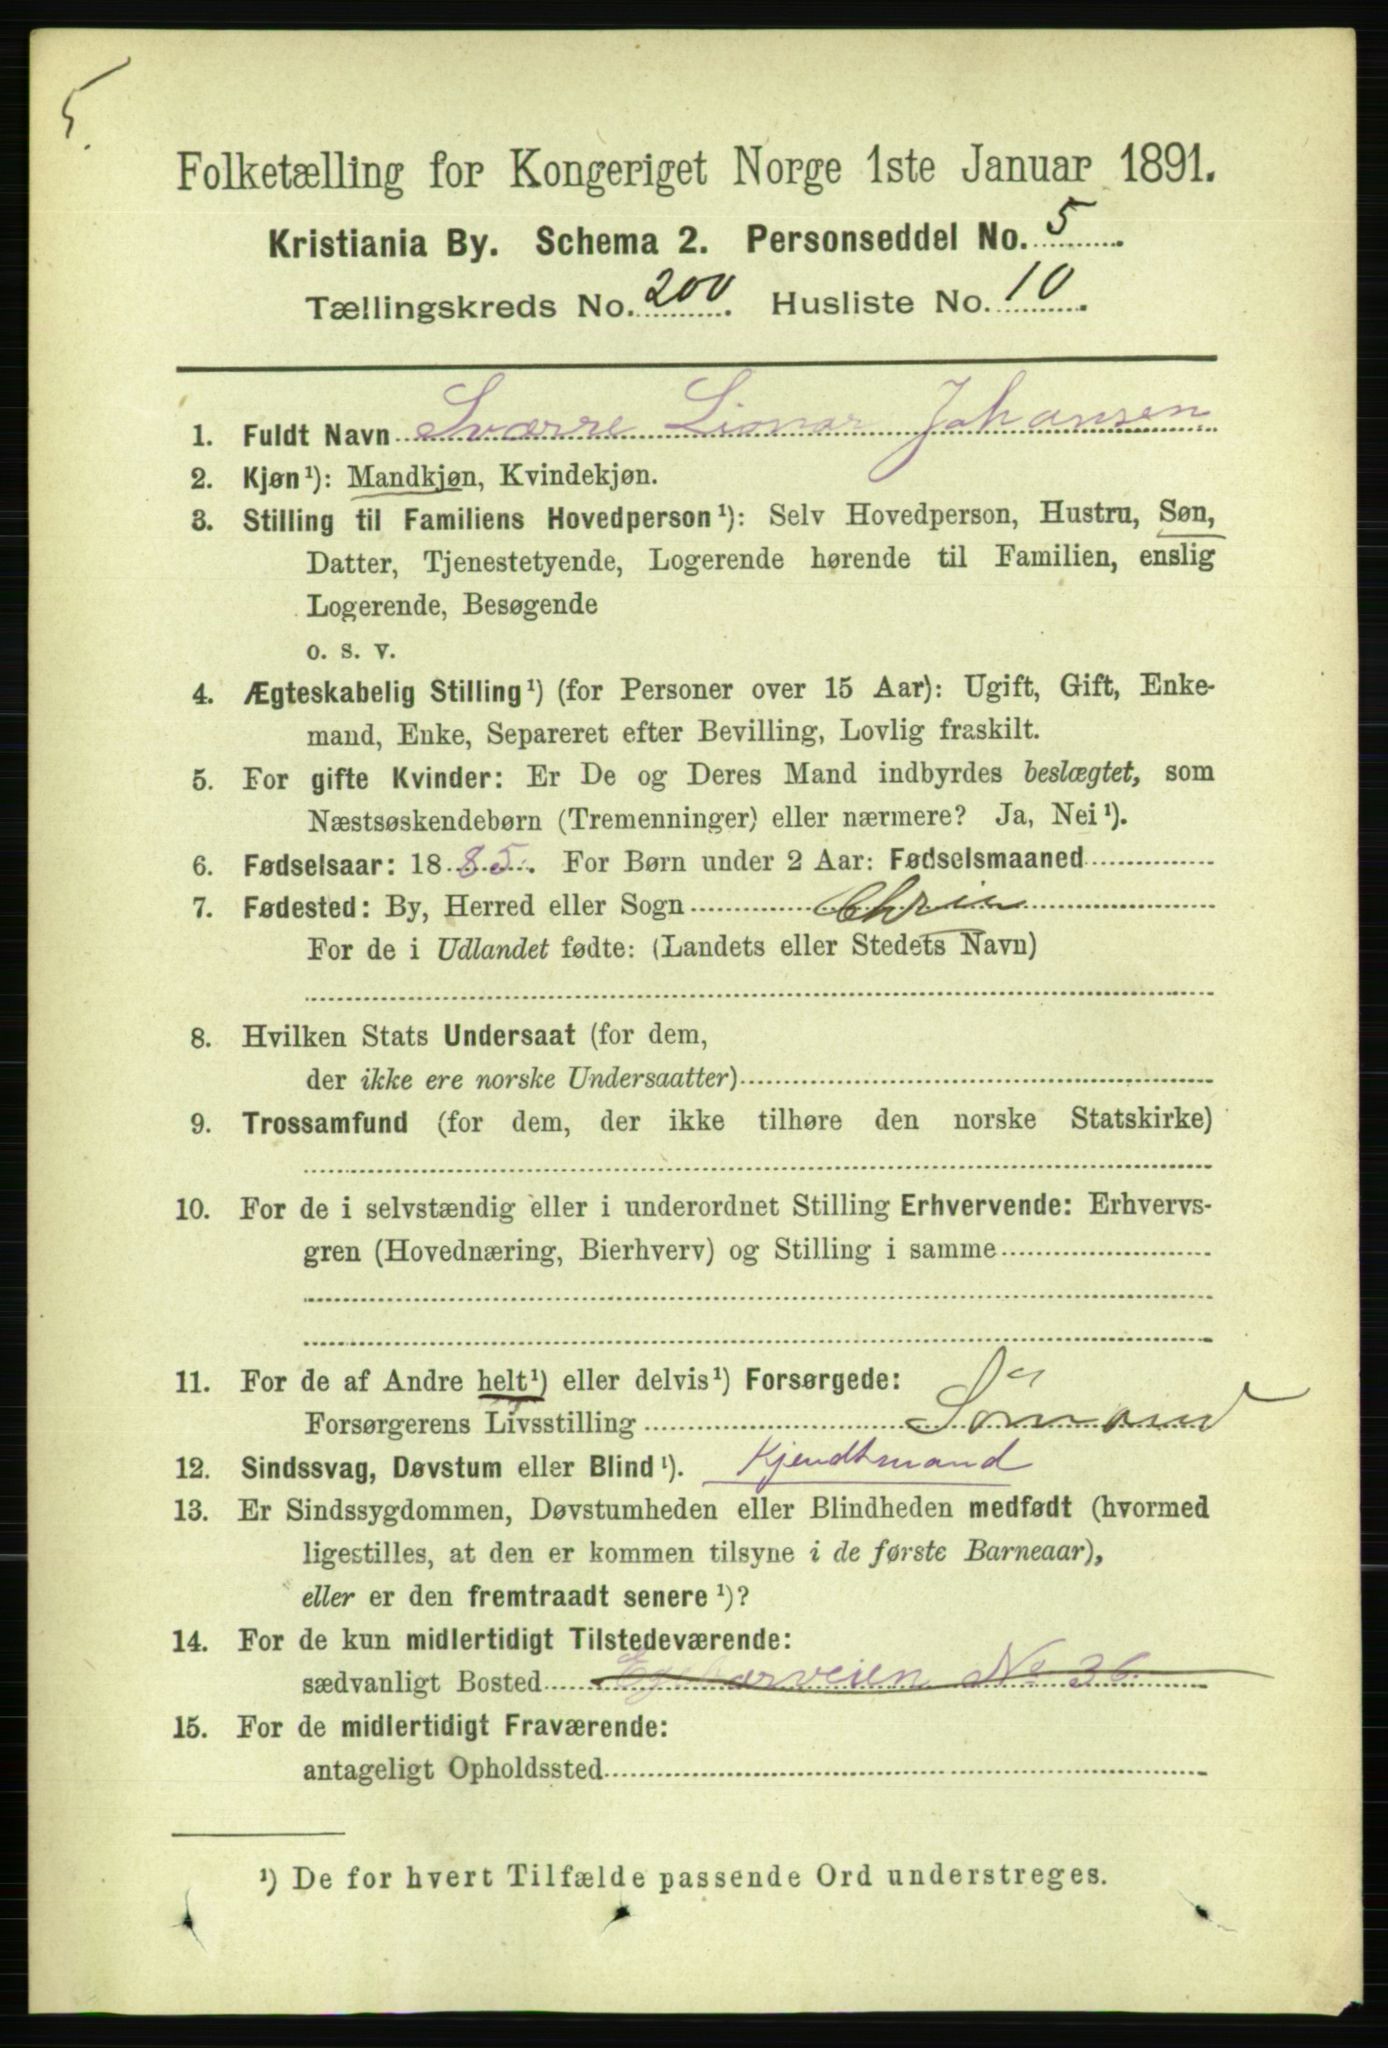 5.
Folketælling for Kongeriget Norge 1ste Januar 1891.
Kristiania By. Schema 2. Personseddel No. 5
Tællingskreds No. 200. Husliste No. 10.
1. Fuldt Navn Sværre Johansen
2. Kjøn¹): Mandkjøn, Kvindekjøn.
3. Stilling til Familiens Hovedperson¹): Selv Hovedperson, Hustru, Søn,
Datter, Tjenestetyende, Logerende hørende til Familien, enslig
Logerende, Besøgende
o. s. v.
4. Ægteskabelig Stilling¹) (for Personer over 15 Aar): Ugift, Gift, Enke-
mand, Enke, Separeret efter Bevilling, Lovlig fraskilt.
5. For gifte Kvinder: Er De og Deres Mand indbyrdes beslægtet, som
Næstsøskendebørn (Tremenninger) eller nærmere? Ja, Nei¹).
6. Fødselsaar: 1885. For Børn under 2 Aar: Fødselsmaaned
7. Fødested: By, Herred eller Sogn Chria
For de i Udlandet fødte: (Landets eller Stedets Navn)
8. Hvilken Stats Undersaat (for dem,
der ikke ere norske Undersaatter)
9. Trossamfund (for dem, der ikke tilhøre den norske Statskirke)
10. For de i selvstændig eller i underordnet Stilling Erhvervende: Erhvervs-
gren (Hovednæring, Bierhverv) og Stilling i samme
11. For de af Andre helt¹) eller delvis¹) Forsørgede:
Forsørgerens Livsstilling Sömand
12. Sindssvag, Døvstum eller Blind¹). Kjendtmand
13. Er Sindssygdommen, Døvstumheden eller Blindheden medfødt (hvormed
ligestilles, at den er kommen tilsyne i de første Barneaar),
eller er den fremtraadt senere¹)?
14. For de kun midlertidigt Tilstedeværende:
sædvanligt Bosted No 36
15. For de midlertidigt Fraværende:
antageligt Opholdssted
¹) De for hvert Tilfælde passende Ord understreges.